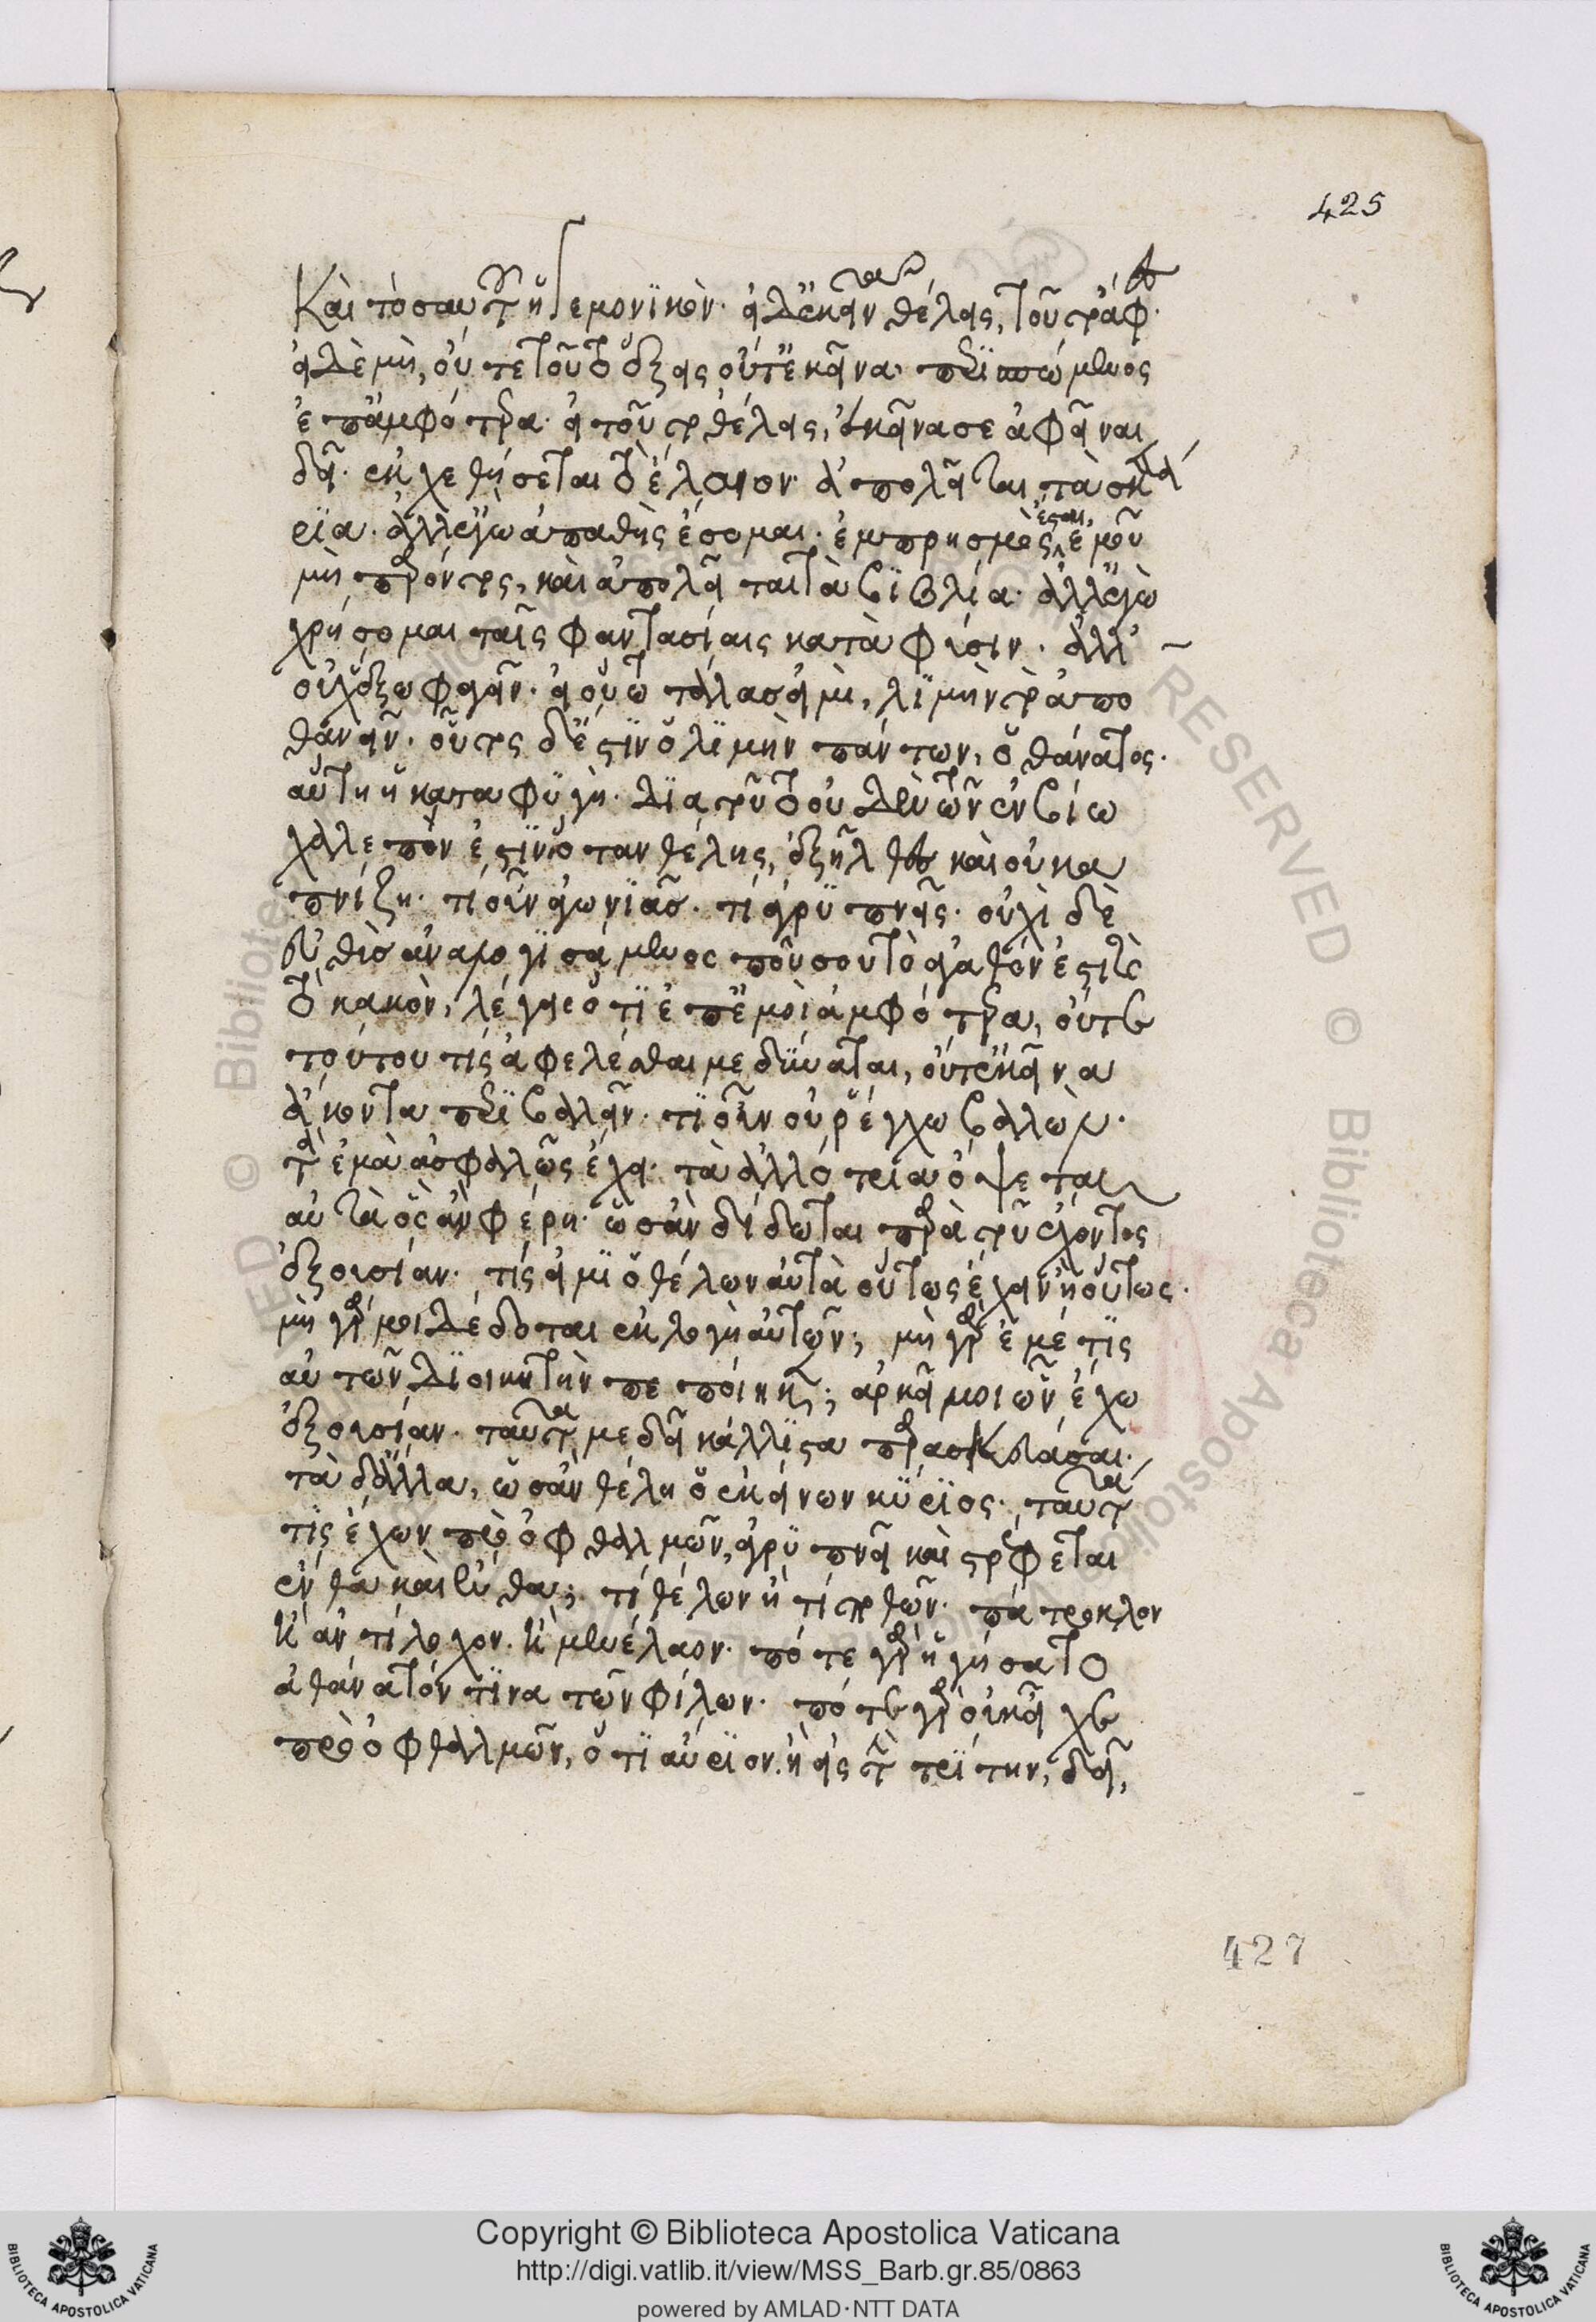 425
Καὶ τὸ σαυτοῦ ἡγεμονικὸν. εἰ δ' ἐκεῖνα θέλεις, τοῦτ' ἄφες.
εἰ δὲ μὴ, οὔτε τοῦθ' ἕξεις οὔτ' ἐκεῖνα. περισπώμενος
ἐπ' ἀμφότερα. εἰ τοῦτο θέλεις, ἐκεῖνα σε ἀφεῖναι
δεῖ. ἐκχεθήσεται τὸ ἔλαιον. ἀπολεῖται τὰ σκευά
ρια. ἀλλ' ἐγὼ ἀπαθὴς ἔσομαι. ἐμπρησμὸς ἔσται, ἐμοῦ
μὴ παρόντος, καὶ ἀπολεῖται τὰ βιβλία. ἀλλ' ἐγὼ
χρήσομαι ταῖς φαντασίαις κατὰ φύσιν. ἀλλ'
οὐχ ἕξω φαγεῖν. εἰ οὕτω τάλας εἰμὶ, λιμὴν τὸ ἀπο
θανεῖν. οὗτος δ' ἔστιν ὁ λιμὴν πάντων, ὁ θάνατος.
αὕτη ἡ καταφυγὴ. διὰ τοῦτο οὐδὲν τῶν ἐν βίω
χαλεπὸν ἐστὶν ὅταν θέλης, ἐξῆλθες καὶ οὐ κα
πνίζη. τί οὖν ἀγωνιᾶς. τί ἀγρυπνεῖς. οὐχὶ δὲ
εὐθὺς ἀναλογισάμενος ποῦ σου τὸ ἀγαθόν ἐστι καὶ
τὸ κακὸν, λέγεις ὅτι ἐπ' ἐμοὶ ἀμφότερα, οὔτε
τούτου τίς ἀφελέσθαι με δύναται, οὔτ' ἐκείνα
ἄκοντα περιβαλεῖν. τί οὖν οὐ ῥέγχω βαλών.
τὰ ἐμὰ ἀσφαλῶς ἔχει. τὰ ἀλλότρια ὄψεται
αὐτὰ ὃς ἂν φέρη. ὡς ἂν δίδωται παρὰ τοῦ ἔχοντος
ἐξουσίαν. τίς εἰμὶ ὁ θέλων αὐτὰ οὕτως ἔχειν ἢ οὕτως.
μὴ γάρ μοι δέδοται ἐκλογὴ αὐτῶν; μὴ γὰρ ἐμέ τις
αὐτῶν διοικητὴν πεποίηκεν; ἀρκεῖ μοι ὧν ἔχω
ἐξουσίαν. ταῦτά με δεῖ κάλλιστα παρασκευάσαι.
τὰ δ' ἄλλα, ὡς ἂν θέλη ὁ ἐκείνων κύριος. ταῦτά
τις ἔχων πρὸ ὀφθαλμῶν, ἀγρυπνεῖ καὶ στρέφεται
ἔνθα καὶ ἔνθα; τί θέλων ἢ τί ποθῶν. πάτροκλον
ἢ ἀντίλοχον. ἢ μενέλαον. πότε γὰρ ἡγήσατο
ἀθάνατόν τινα τῶν φίλων. πότε γὰρ οὐκ εἶχε
πρὸ ὀφθαλμῶν, ὅτι αὔριον ἢ εἰς τὴν τρίτην, δεῖ,
427
Copyright © Biblioteca Apostolica Vaticana
http://digi.vatlib.it/view/MSS_Barb.gr.85/0863
powered by AMLAD·NTT DATA